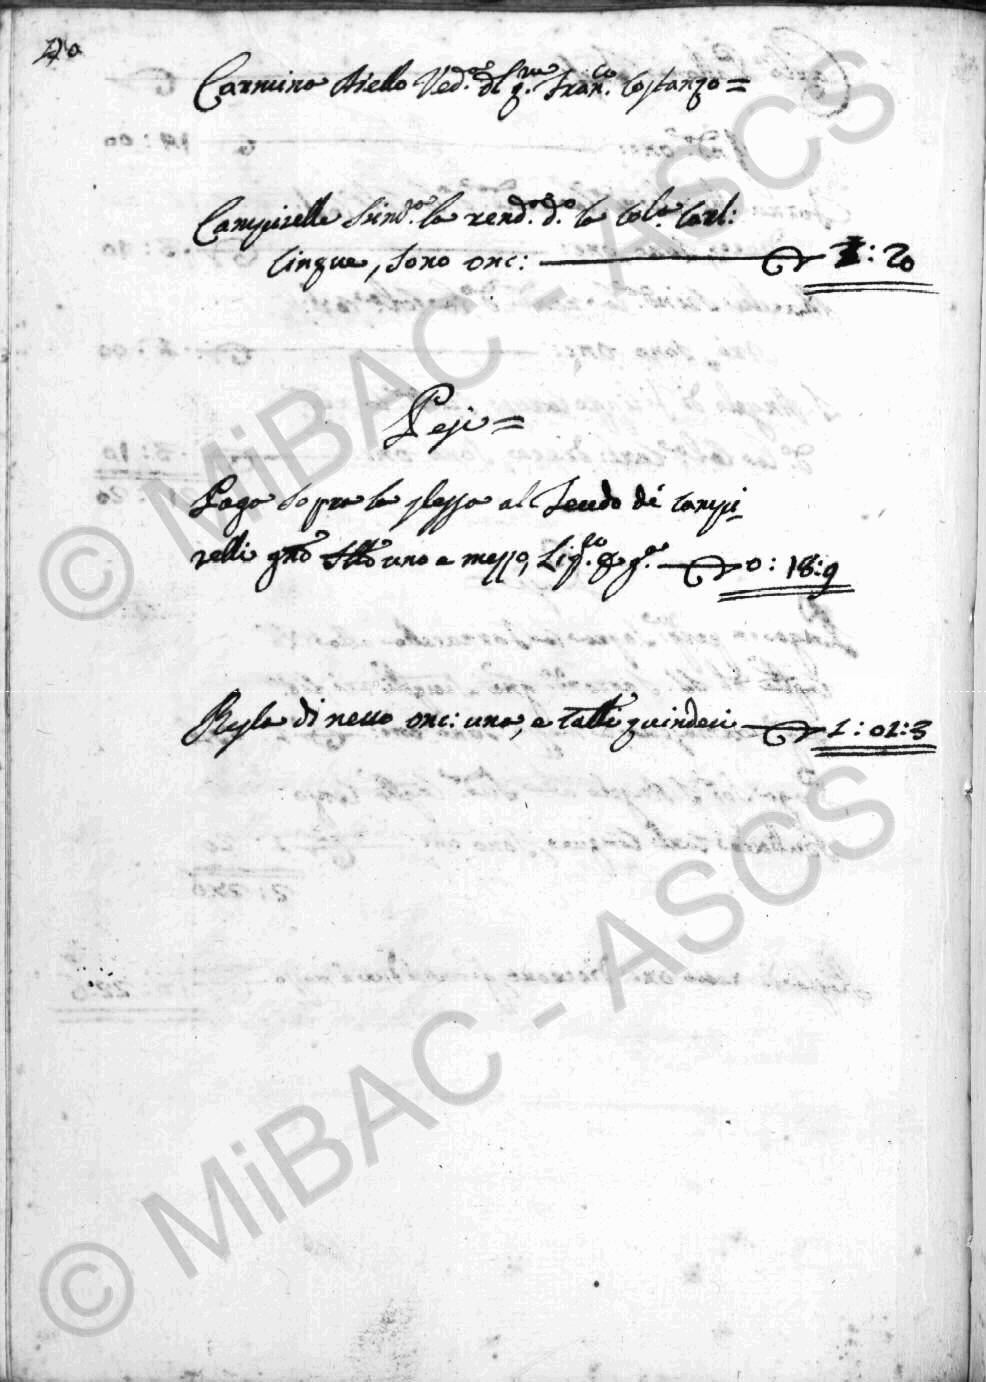 40
Carmino Aiello Ved.o d'l q.m Fran.co Costanzo=
Campirelle Find.o la rend.o d.o la Col.a Carl:
Cinque, sono onc: 1: 20
Pesi=
Paga sopra la stessa al Feudo dé Campi
relli gno uno e mezzo, 0: 18:9
Resta di netto onc: una, e tallj quindeci 1: 01:3
© MiBAC - ASCS
© MiBAC - ASCS